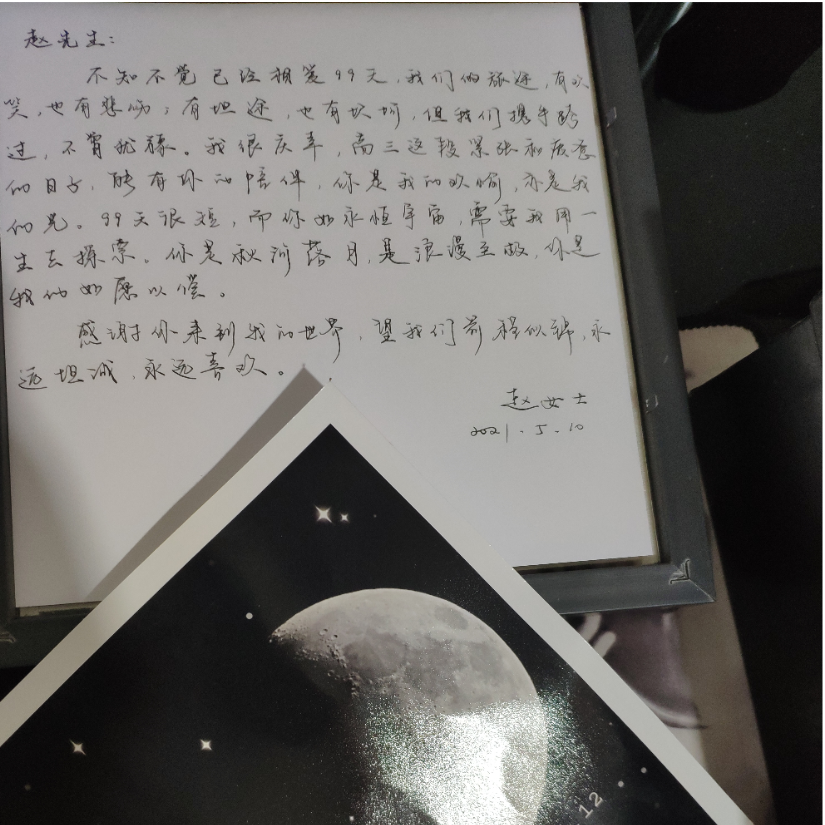 赵先生：
不知不觉已经相爱99天，我们的旅途，有欢
笑，也有悲伤；有坦途，也有坎坷，但我们携手跨
过，不曾犹豫。我很庆幸，高三这段紧张和疲惫
的日子，能有你的陪伴，你是我的欢愉，亦是我
的光。99天很短，而你如永恒宇宙，需要我用一
生去探索。你是秋河落月，是浪漫至极，你是
我的如愿以偿。
感谢你来到我的世界，望我们前程似锦，永
远坦诚，永远喜欢。
赵女士
2021.5.10
12